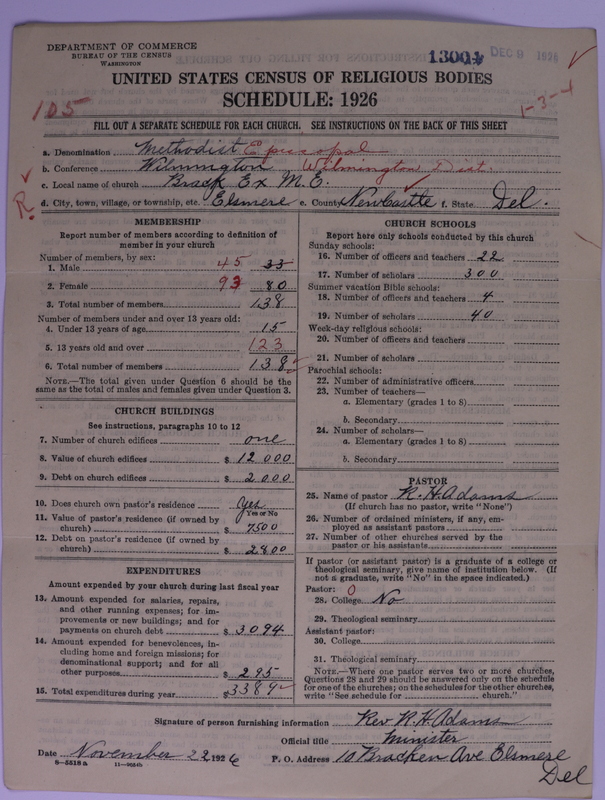 DEPARTMENT OF COMMERCE
BUREAU OF THE CENSUS
WASHINGTON
13004 DEC 9 1926
UNITED STATES CENSUS OF RELIGIOUS BODIES
SCHEDULE: 1926
105
1-3-4
FILL OUT A SEPARATE SCHEDULE FOR EACH CHURCH. SEE INSTRUCTIONS ON THE BACK OF THIS SHEET
a. Denomination Methodist Episcopal
b. Conference Wilmington Wilmington Dist.
c. Local name of church Brack Ex M. E.
d. City, town, village, or township, etc. Elsmere e. County Newcastle f. State Del.
R.
MEMBERSHIP
Report number of members according to definition of
member in your church
Number of members, by sex:
1. Male 45 33
2. Female 93 80
3. Total number of members 138
Number of members under and over 13 years old:
4. Under 13 years of age 15
5. 13 years old and over 123
6. Total number of members 138
NOTE.—The total given under Question 6 should be the
same as the total of males and females given under Question 3.
CHURCH BUILDINGS
See instructions, paragraphs 10 to 12
7. Number of church edifices one
8. Value of church edifices $ 12000
9. Debt on church edifices $ 2000
10. Does church own pastor's residence Yes
Yes or No
11. Value of pastor's residence (if owned by
church) $ 7500
12. Debt on pastor's residence (if owned by
church) $ 2800
EXPENDITURES
Amount expended by your church during last fiscal year
13. Amount expended for salaries, repairs,
and other running expenses; for im-
provements or new buildings; and for
payments on church debt $ 3094
14. Amount expended for benevolences, in-
cluding home and foreign missions; for
denominational support; and for all
other purposes $ 295
15. Total expenditures during year $ 3389
CHURCH SCHOOLS
Report here only schools conducted by this church
Sunday schools:
16. Number of officers and teachers 22
17. Number of scholars 300
Summer vacation Bible schools:
18. Number of officers and teachers 4
19. Number of scholars 40
Week-day religious schools:
20. Number of officers and teachers
21. Number of scholars
Parochial schools:
22. Number of administrative officers
23. Number of teachers—
a. Elementary (grades 1 to 8)
b. Secondary
24. Number of scholars—
a. Elementary (grades 1 to 8)
b. Secondary
PASTOR
25. Name of pastor R. H. Adams
(If church has no pastor, write "None")
26. Number of ordained ministers, if any, em-
ployed as assistant pastors
27. Number of other churches served by the
pastor or his assistants
If pastor (or assistant pastor) is a graduate of a college or
theological seminary, give name of institution below. (If
not a graduate, write "No" in the space indicated.)
Pastor: 0
28. College No
29. Theological seminary
Assistant pastor:
30. College
31. Theological seminary
NOTE.—Where one pastor serves two or more churches,
Questions 28 and 29 should be answered only on the schedule
for one of the churches; on the schedules for the other churches,
write "See schedule for church."
Signature of person furnishing information Rev. R. H. Adams
Official title Minister
Date November 22 1926 P. O. Address 10 Bracken Ave Elsmere
Del
8-5518 a